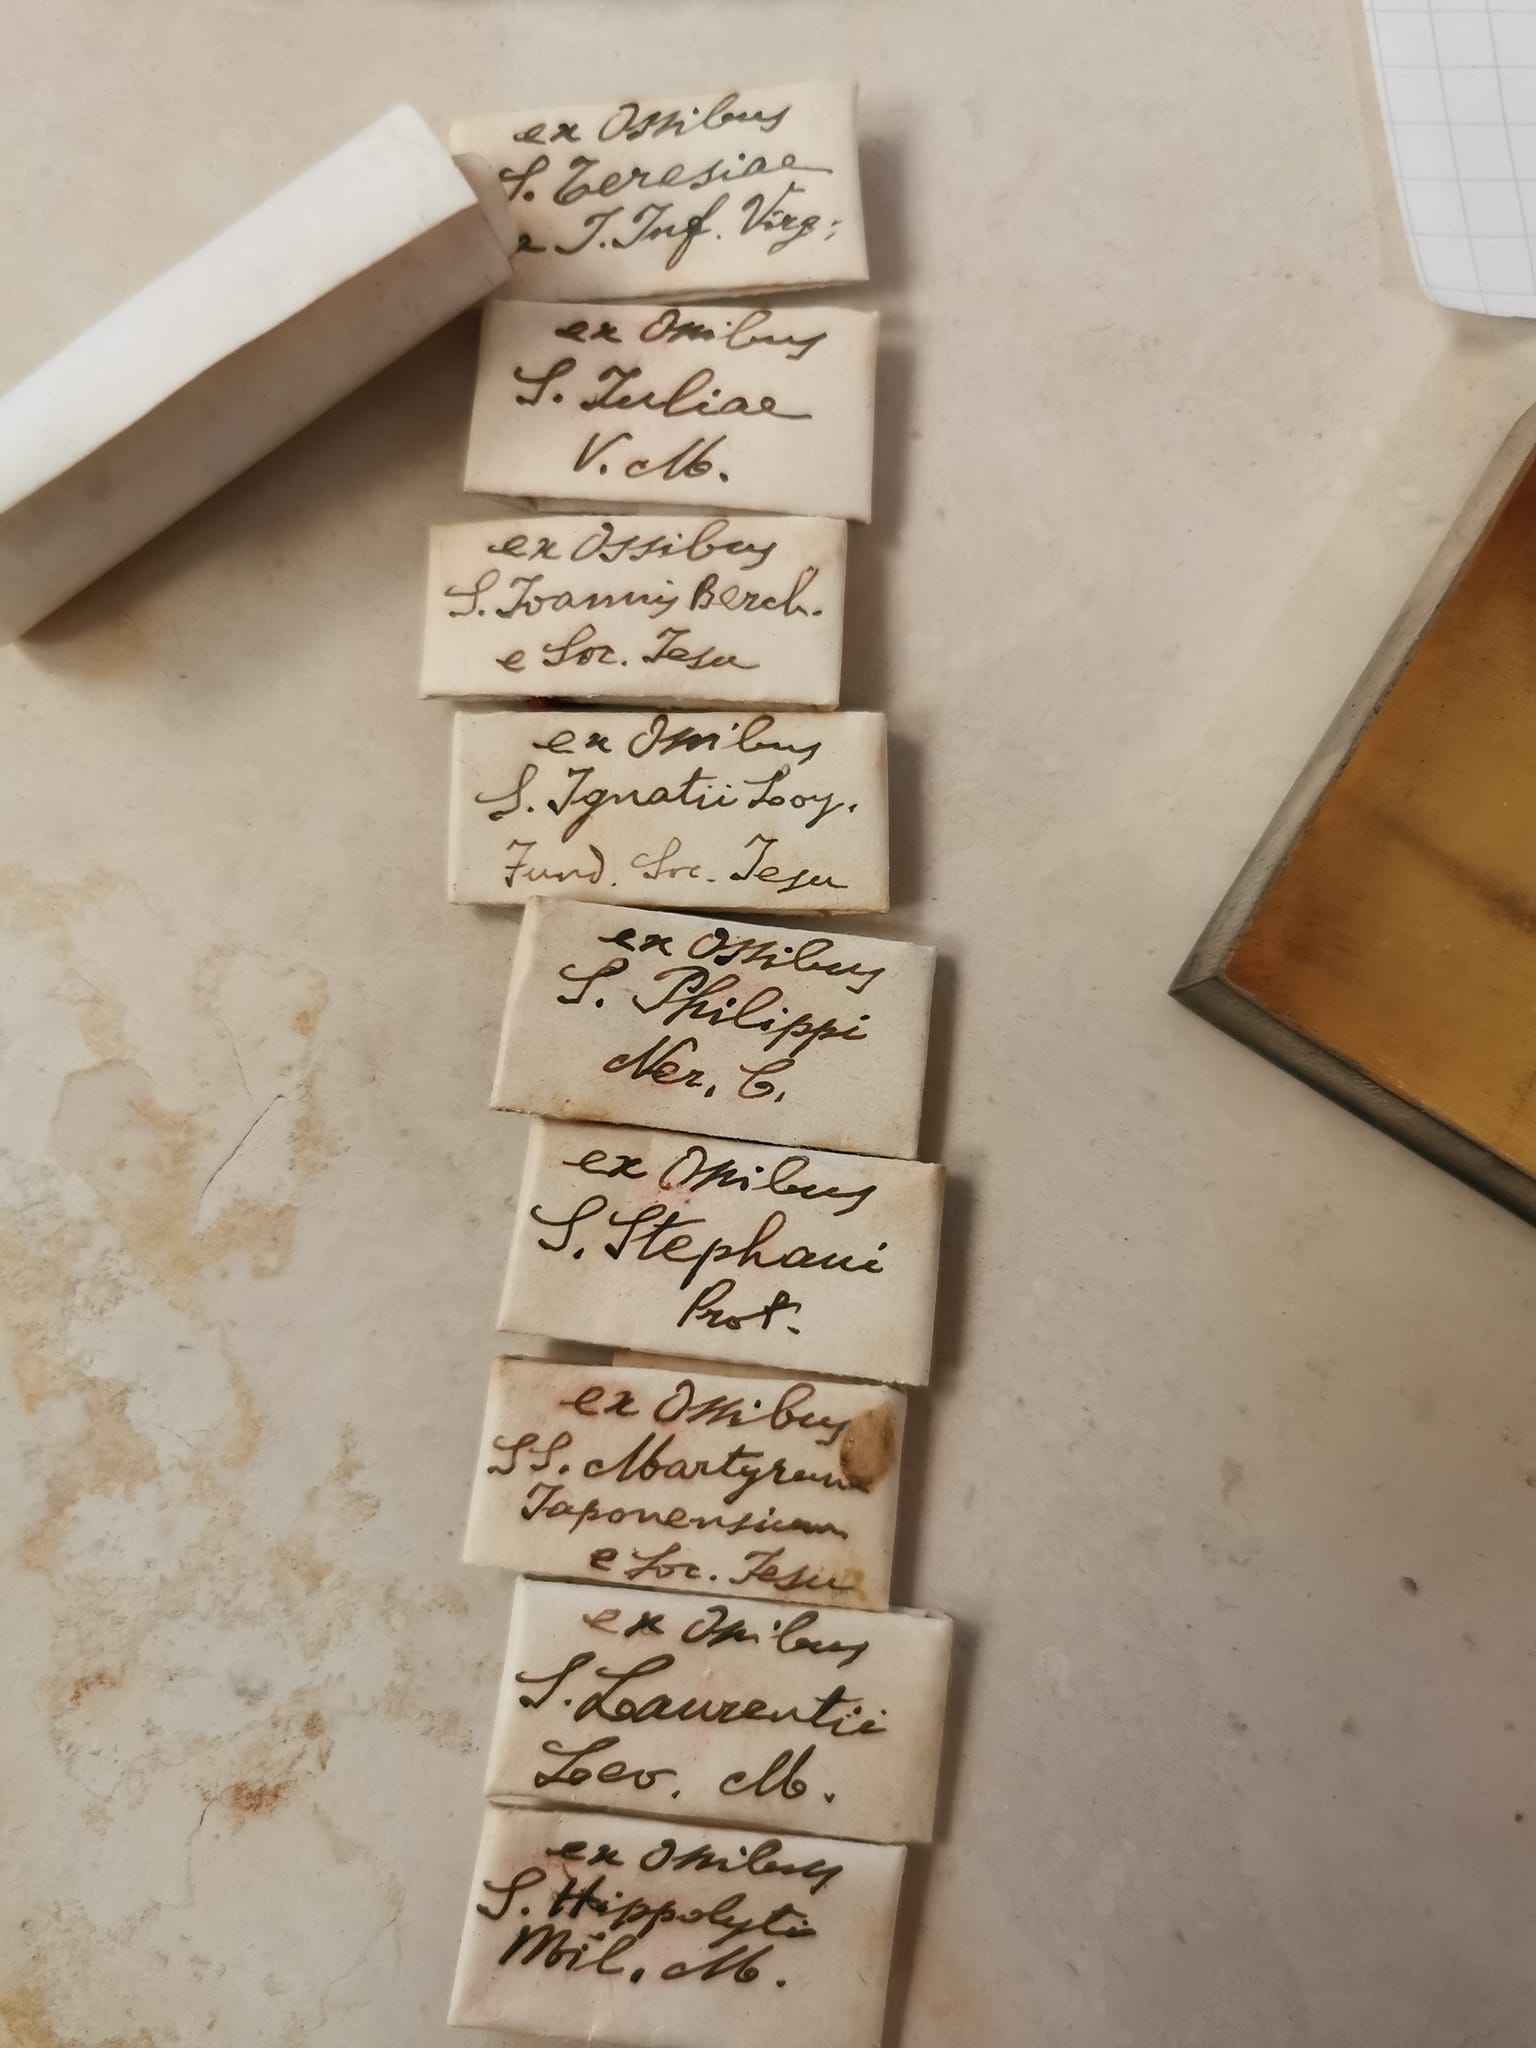 ex Ossibus
S. Teresiae
a J. Inf. Virg:
ex Ossibus
S. Iuliae
V. M.
ex Ossibus
S. Ioannis Berch.
e Soc. Iesu
ex Ossibus
S. Ignatii Loy.
Fund. Soc. Iesu
ex Ossibus
S. Philippi
Ner. C.
ex Ossibus
S. Stephani
Prot.
ex Ossibus
SS. Martyrum
Iaponensium
e Soc. Iesu
ex Ossibus
S. Laurentii
Lev. M.
ex Ossibus
S. Hippolyti
Mil. M.